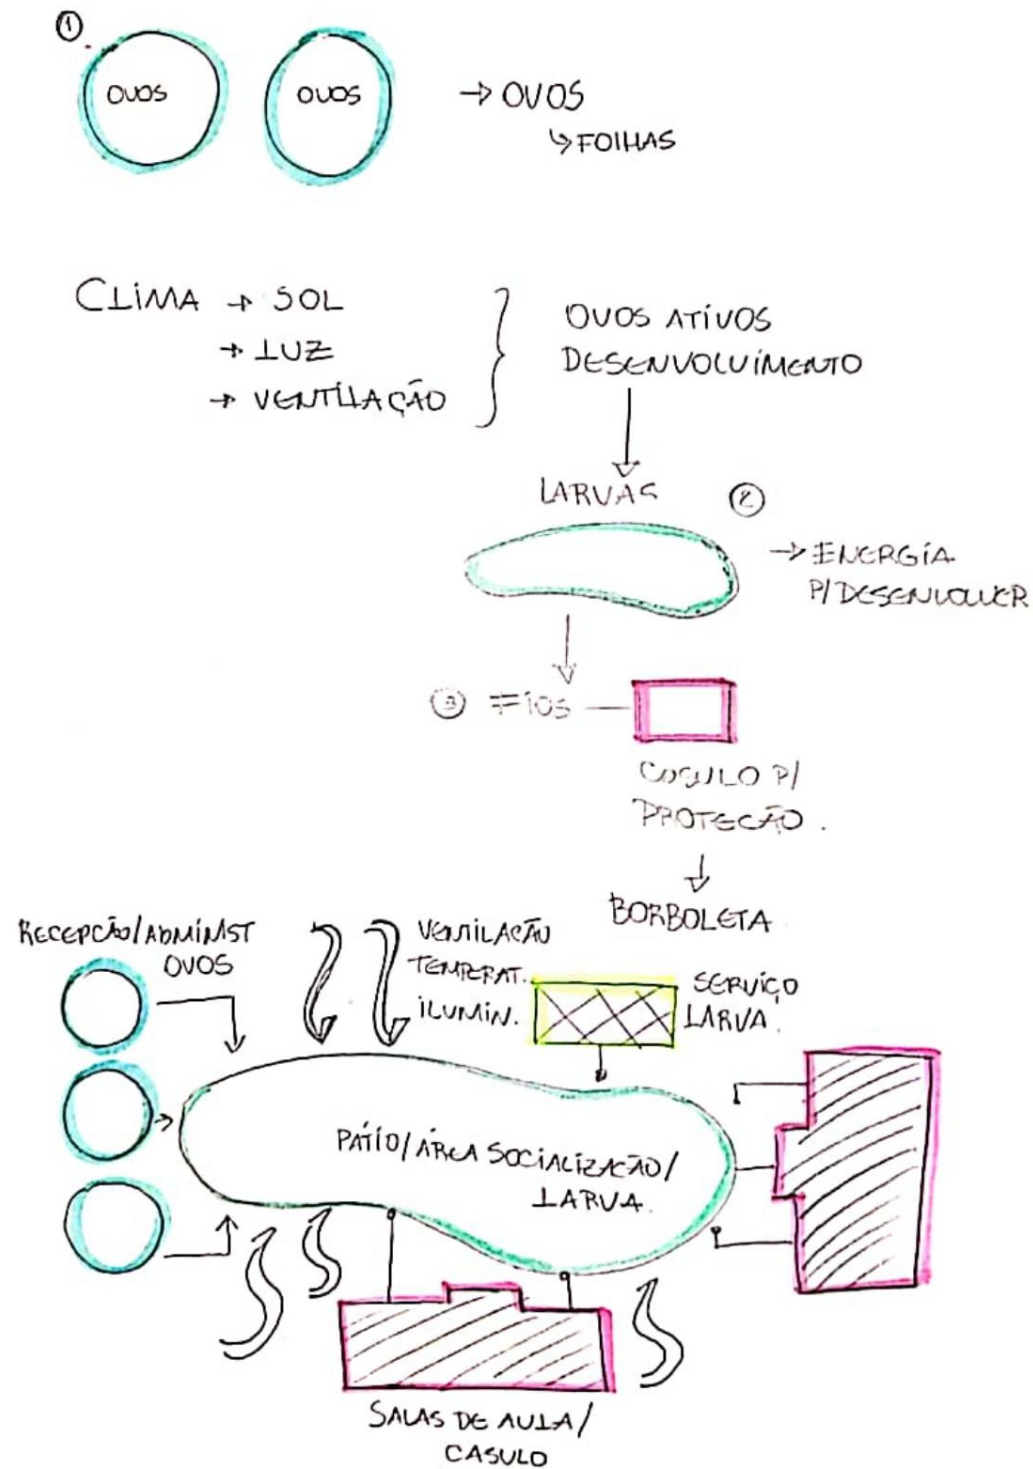 1
OVOS
OVOS
→ OVOS
↳ FOLHAS
CLIMA → SOL
→ LUZ
→ VENTILAÇÃO
OVOS ATIVOS
DESENVOLVIMENTO
LARVAS
2
→ ENERGIA
P/ DESENVOLVER
3 FIOS
COSULO P/
PROTEÇÃO.
BORBOLETA
RECEPÇÃO/ADMINIST
OVOS
VENTILAÇÃO
TEMPERAT.
ILUMIN.
SERVIÇO
LARVA.
PÁTIO/ÁREA SOCIALIZAÇÃO/
LARVA.
SALAS DE AULA/
CASULO